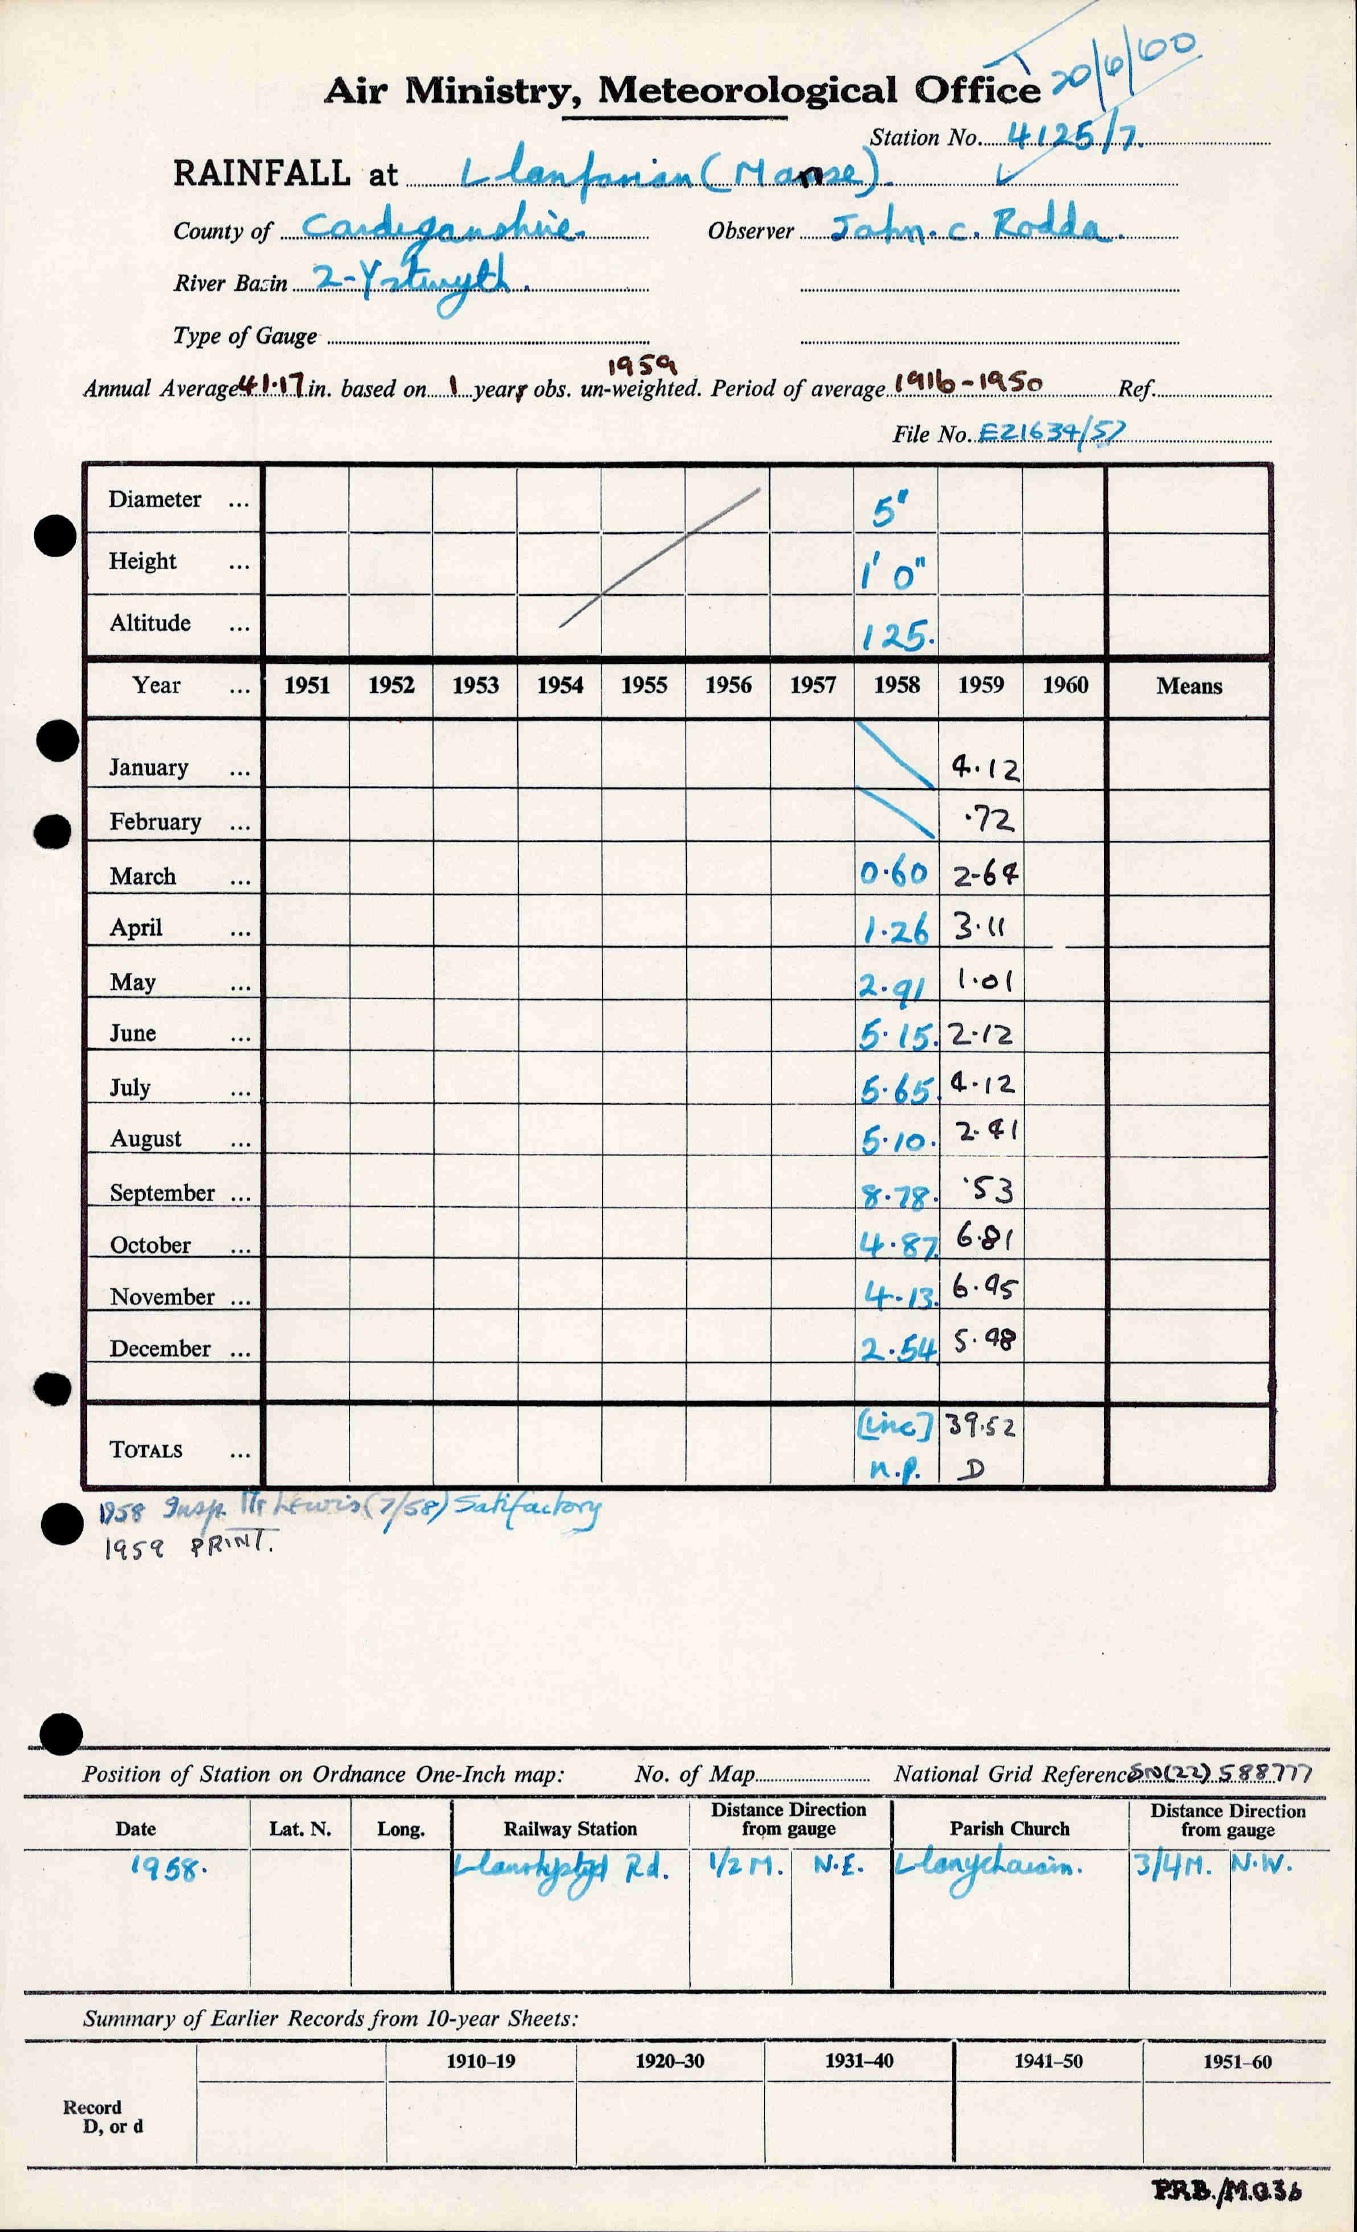 20/6/60
Air Ministry, Meteorological Office
Station No. 4125/7.
RAINFALL at Llanfarian (Manse).
County of Cardiganshire. Observer John. C. Rodda.
River Basin 2-Ystwyth.
Type of Gauge
1959
Annual Average 41.17 in. based on 1 years obs. un-weighted. Period of average 1916-1950 Ref.
File No. EZ1634/57
Diameter ... 5"
Height ... 1' 0"
Altitude ... 125.
Year ... 1951 1952 1953 1954 1955 1956 1957 1958 1959 1960 Means
January ... 4.12
February ... .72
March ... 0.60 2.64
April ... 1.26 3.11
May ... 2.91 1.01
June ... 5.15. 2.12
July ... 5.65. 4.12
August ... 5.10. 2.41
September ... 8.78. .53
October ... 4.87. 6.81
November ... 4.13. 6.45
December ... 2.54 5.48
TOTALS ... [inc] 39.52
n.p. D
1958 Insp. Mr Lewis (7/58) Satifactory
1959 PRINT.
Position of Station on Ordnance One-Inch map: No. of Map National Grid Reference SN(22) 588777
Date Lat. N. Long. Railway Station Distance Direction from gauge Parish Church Distance Direction from gauge
1958. Rd. 1/2 M. N.E. 3/4 M. N.W.
Summary of Earlier Records from 10-year Sheets:
1910–19 1920–30 1931–40 1941–50 1951–60
Record
D, or d
P.R.B./M.O.36